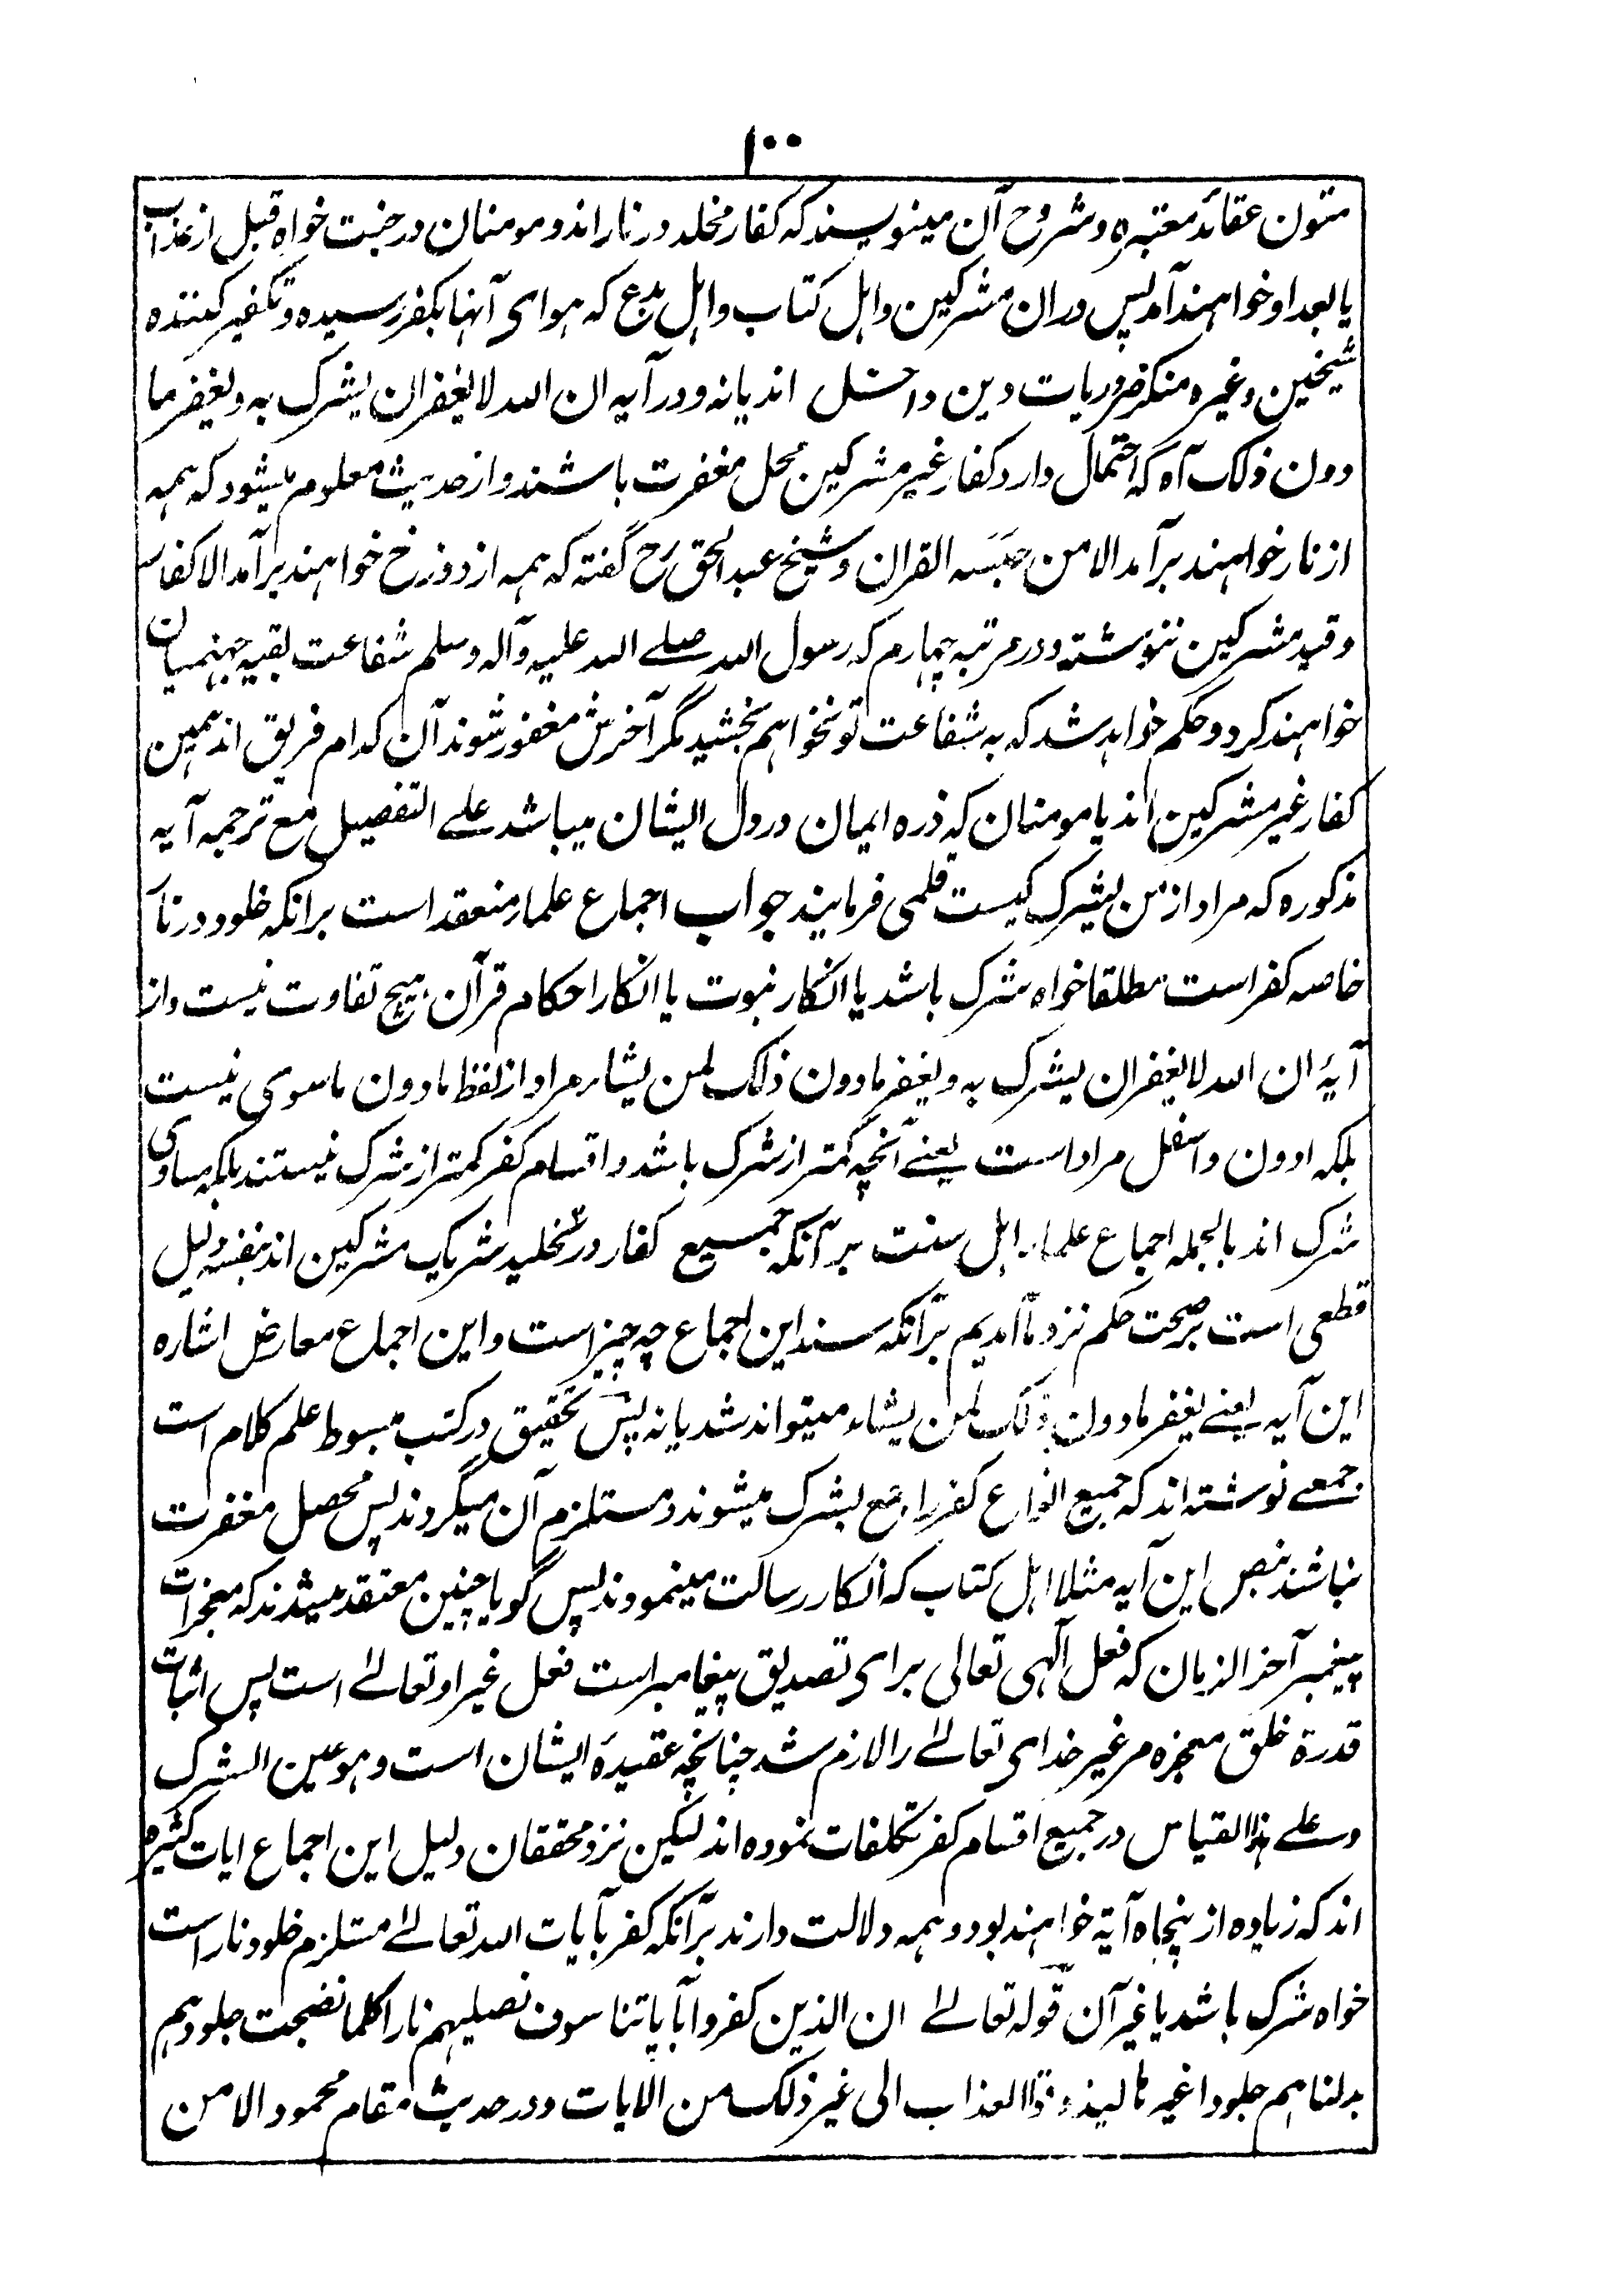 ۱۰۰
متون عقائد معتبره و شروح آن مینویسند که کفار مخلد در نار اند و مومنان در جنت خواه قبل از عذاب
یا بعد او خواهند آمد پس دران مشرکین و اہل کتاب و اہل بدع که هوای آنها بکفر رسیده و تکفیر کننده
شیخین وغیره منکر ضروریات دین داخل اند یا نه و در آیه ان الله لا یغفر ان یشرک به و یغفر ما
دون ذلک آه که احتمال دارد کفار غیر مشرکین محل مغفرت باشند و از حدیث معلوم میشود که همه
از نار خواهند برآمد الا من حبسه القران و شیخ عبد الحق رح گفته که همه از دوزخ خواهند برآمد الا کفار
و قید مشرکین ننوشته و در مرتبه چهارم که رسول الله صلے الله علیه و آله وسلم شفاعت بقیه جهنمیان
خواهند کرد و حکم خواهد شد که به شفاعت تو نخواهم بخشید مگر آخرش مغفور شوند آن کدام فریق اند همین
کفار غیر مشرکین اند یا مومنان که ذره ایمان در دل ایشان میباشد علے التفصیل مع ترجمه آیه
مذکوره که مراد از من یشرک کیست قلمی فرمایند جواب اجماع علماء منعقد است برانکه خلود در نار
خاصه کفر است مطلقا خواه شرک باشد یا انکار نبوت یا انکار احکام قرآن هیچ تفاوت نیست و از
آیهٔ ان الله لا یغفر ان یشرک به و یغفر ما دون ذلک لمن یشاء مراد از لفظ ما دون ما سوی نیست
بلکه ادون و اسفل مراد است یعنے آنچه کمتر از شرک باشد و اقسام کفر کمتر از شرک نیستند بلکه مساوی
شرک اند بالجمله اجماع علماء اہل سنت بر آنکه جمیع کفار در تخلید شریک مشرکین اند بنفسه دلیل
قطعی است بر صحت حکم نزد ما آمدیم بر آنکه سند این اجماع چه چیز است و این اجماع معارض اشاره
این آیه یعنے یغفر ما دون ذلک لمن یشاء میتواند شد یا نه پس تحقیق در کتب مبسوط علم کلام است
جمعے نوشته اند که جمیع انواع کفر راجع بشرک میشوند و مستلزم آن میگردند پس محصل مغفرت
نباشند بنص این آیه مثلا اہل کتاب که انکار رسالت مینمودند پس گویا چنین معتقد میشدند که معجزات
پیغمبر آخر الزمان که فعل الٰهی تعالی برای تصدیق پیغامبر است فعل غیر او تعالےٰ است پس اثبات
قدرة خلق معجزه مر غیر خدای تعالےٰ را لازم شد چنانچه عقیدهٔ ایشان است و هو عین الشرک
و علے هذا القیاس در جمیع اقسام کفر تکلفات نموده اند لیکن نزد محققان دلیل این اجماع ایات کثیره
اند که زیاده از پنجاه آیة خواهند بود و همه دلالت دارند بر آنکه کفر بآیات الله تعالےٰ مستلزم خلود نار است
خواه شرک باشد یا غیر آن قوله تعالےٰ ان الذین کفروا بآیاتنا سوف نصلیهم نارا کلما نضجت جلودهم
بدلناهم جلودا غیرها لیذوقوا العذاب الی غیر ذلک من الایات و در حدیث مقام محمود الا من